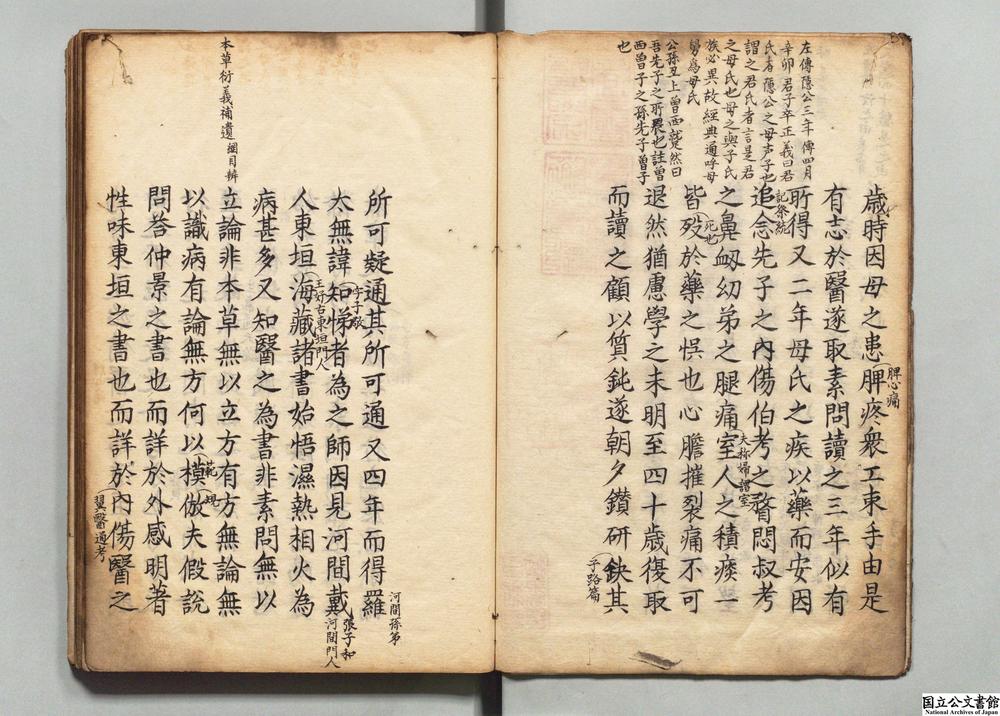 左傳隱公三年傳四月
辛卯君子卒正義曰君
氏者隱公之母声子也
謂之君氏者言是君
之母氏也母之與子氏
族必異故經典通呼母
舅為母氏
公孫丑上曾西蹵然曰
吾先子之所畏也註曾
西曾子之孫先子曾子
也
歳時因母之患脾疼衆工束手由是
脾心痛
有志於醫遂取素問讀之三年似有
所得又二年母氏之疾以藥而安因
記祭統
追念先子之內傷伯考之瞀悶叔考
之鼻衂幼弟之腿痛室人之積痰一
夫称婦謂室
皆殁於藥之悞也心膽摧裂痛不可
死也
退然猶慮學之未明至四十歳復取
而讀之顧以質鈍遂朝夕鑚研缺其
子路篇
所可疑通其所可通又四年而得羅
河間孫第
太無諱知悌者為之師因見河間戴
字子敬
張子和
河間門人
人東垣海藏諸書始悟濕熱相火為
王好古東垣門人
病甚多又知醫之為書非素問無以
立論非本草無以立方有方無論無
以識病有論無方何以模倣夫假說
範
規
問荅仲景之書也而詳於外感明著
性味東垣之書也而詳於內傷醫之
翼醫通考
本草衍義補遺綱目辨
国立公文書館
National Archives of Japan